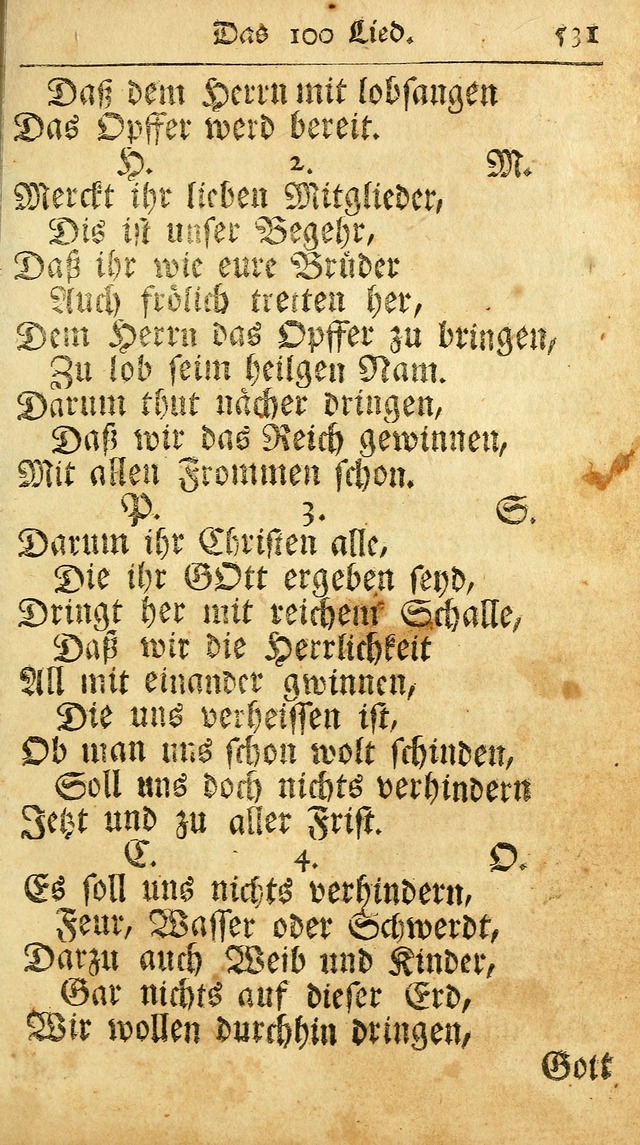 Das 100 Lied. 531
Daß dem Herrn mit lobsangen
Das Opffer werd bereit.
H. 2. M.
Merckt ihr lieben Mitglieder,
Dis ist unser Begehr,
Daß ihr wie eure Brüder
Auch frölich tretten her,
Dem Herrn das Opffer zu bringen,
Zu lob seim heilgen Nam.
Darum thut nächer dringen,
Daß wir das Reich gewinnen,
Mit allen Frommen schon.
P. 3. S.
Darum ihr Christen alle,
Die ihr GOtt ergeben seyd,
Dringt her mit reichem Schalle,
Daß wir die Herrlichkeit
All mit einander gwinnen,
Die uns verheissen ist,
Ob man uns schon wolt schinden,
Soll uns doch nichts verhindern
Jetzt und zu aller Frist.
C. 4. O.
Es soll uns nichts verhindern,
Feur, Wasser oder Schwerdt,
Darzu auch Weib und Kinder,
Gar nichts auf dieser Erd,
Wir wollen durchhin dringen,
Gott